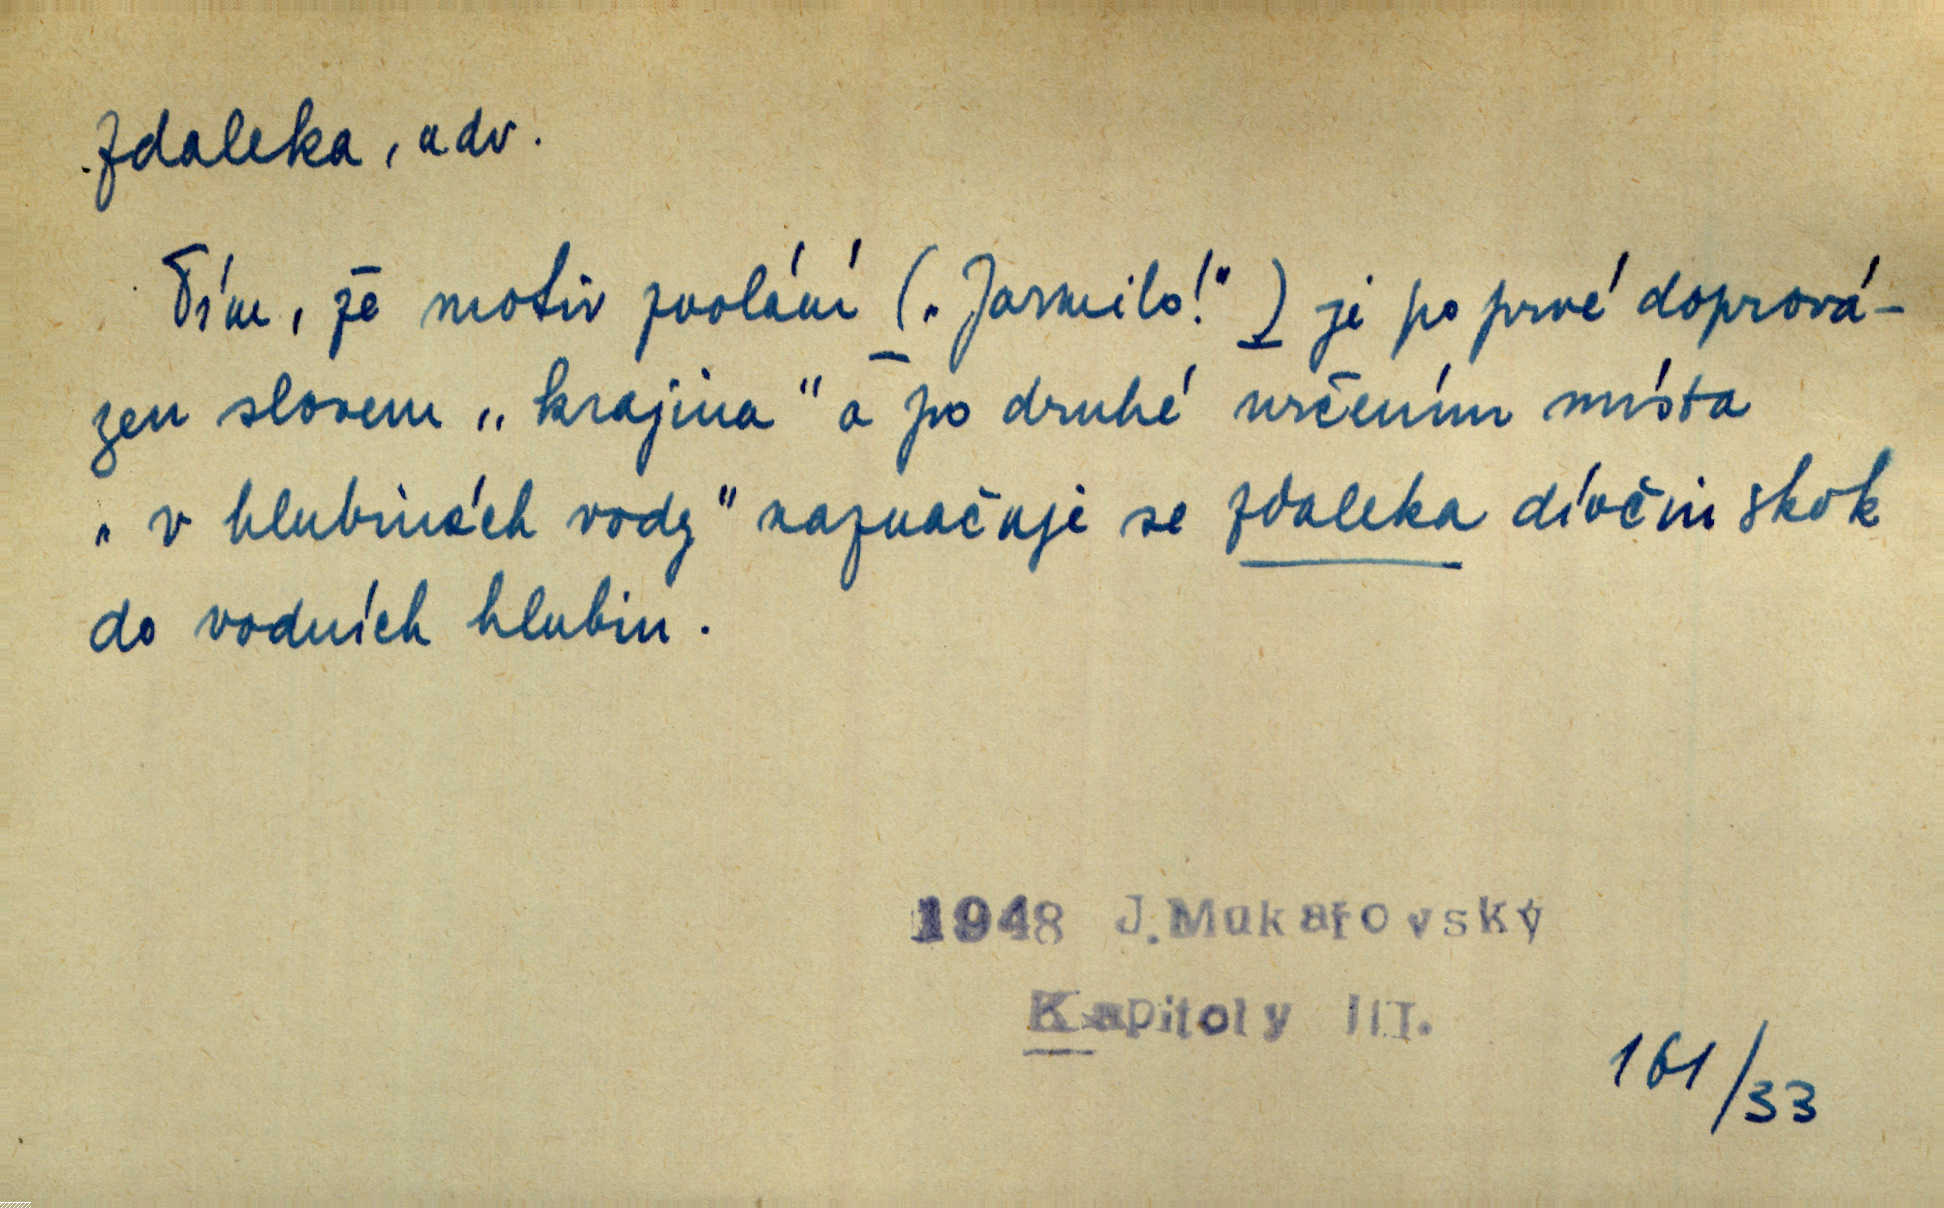 zdaleka, adv.
Tím, že motiv zvolání („Jarmilo!“) je po prvé doprová-
zen slovem „krajina“ a po druhé určením místa
„v hlubinách vody“ naznačuje se zdaleka dívčin skok
do vodních hlubin.
1948 J.Mukařovský
Kapitoly III.
161/33